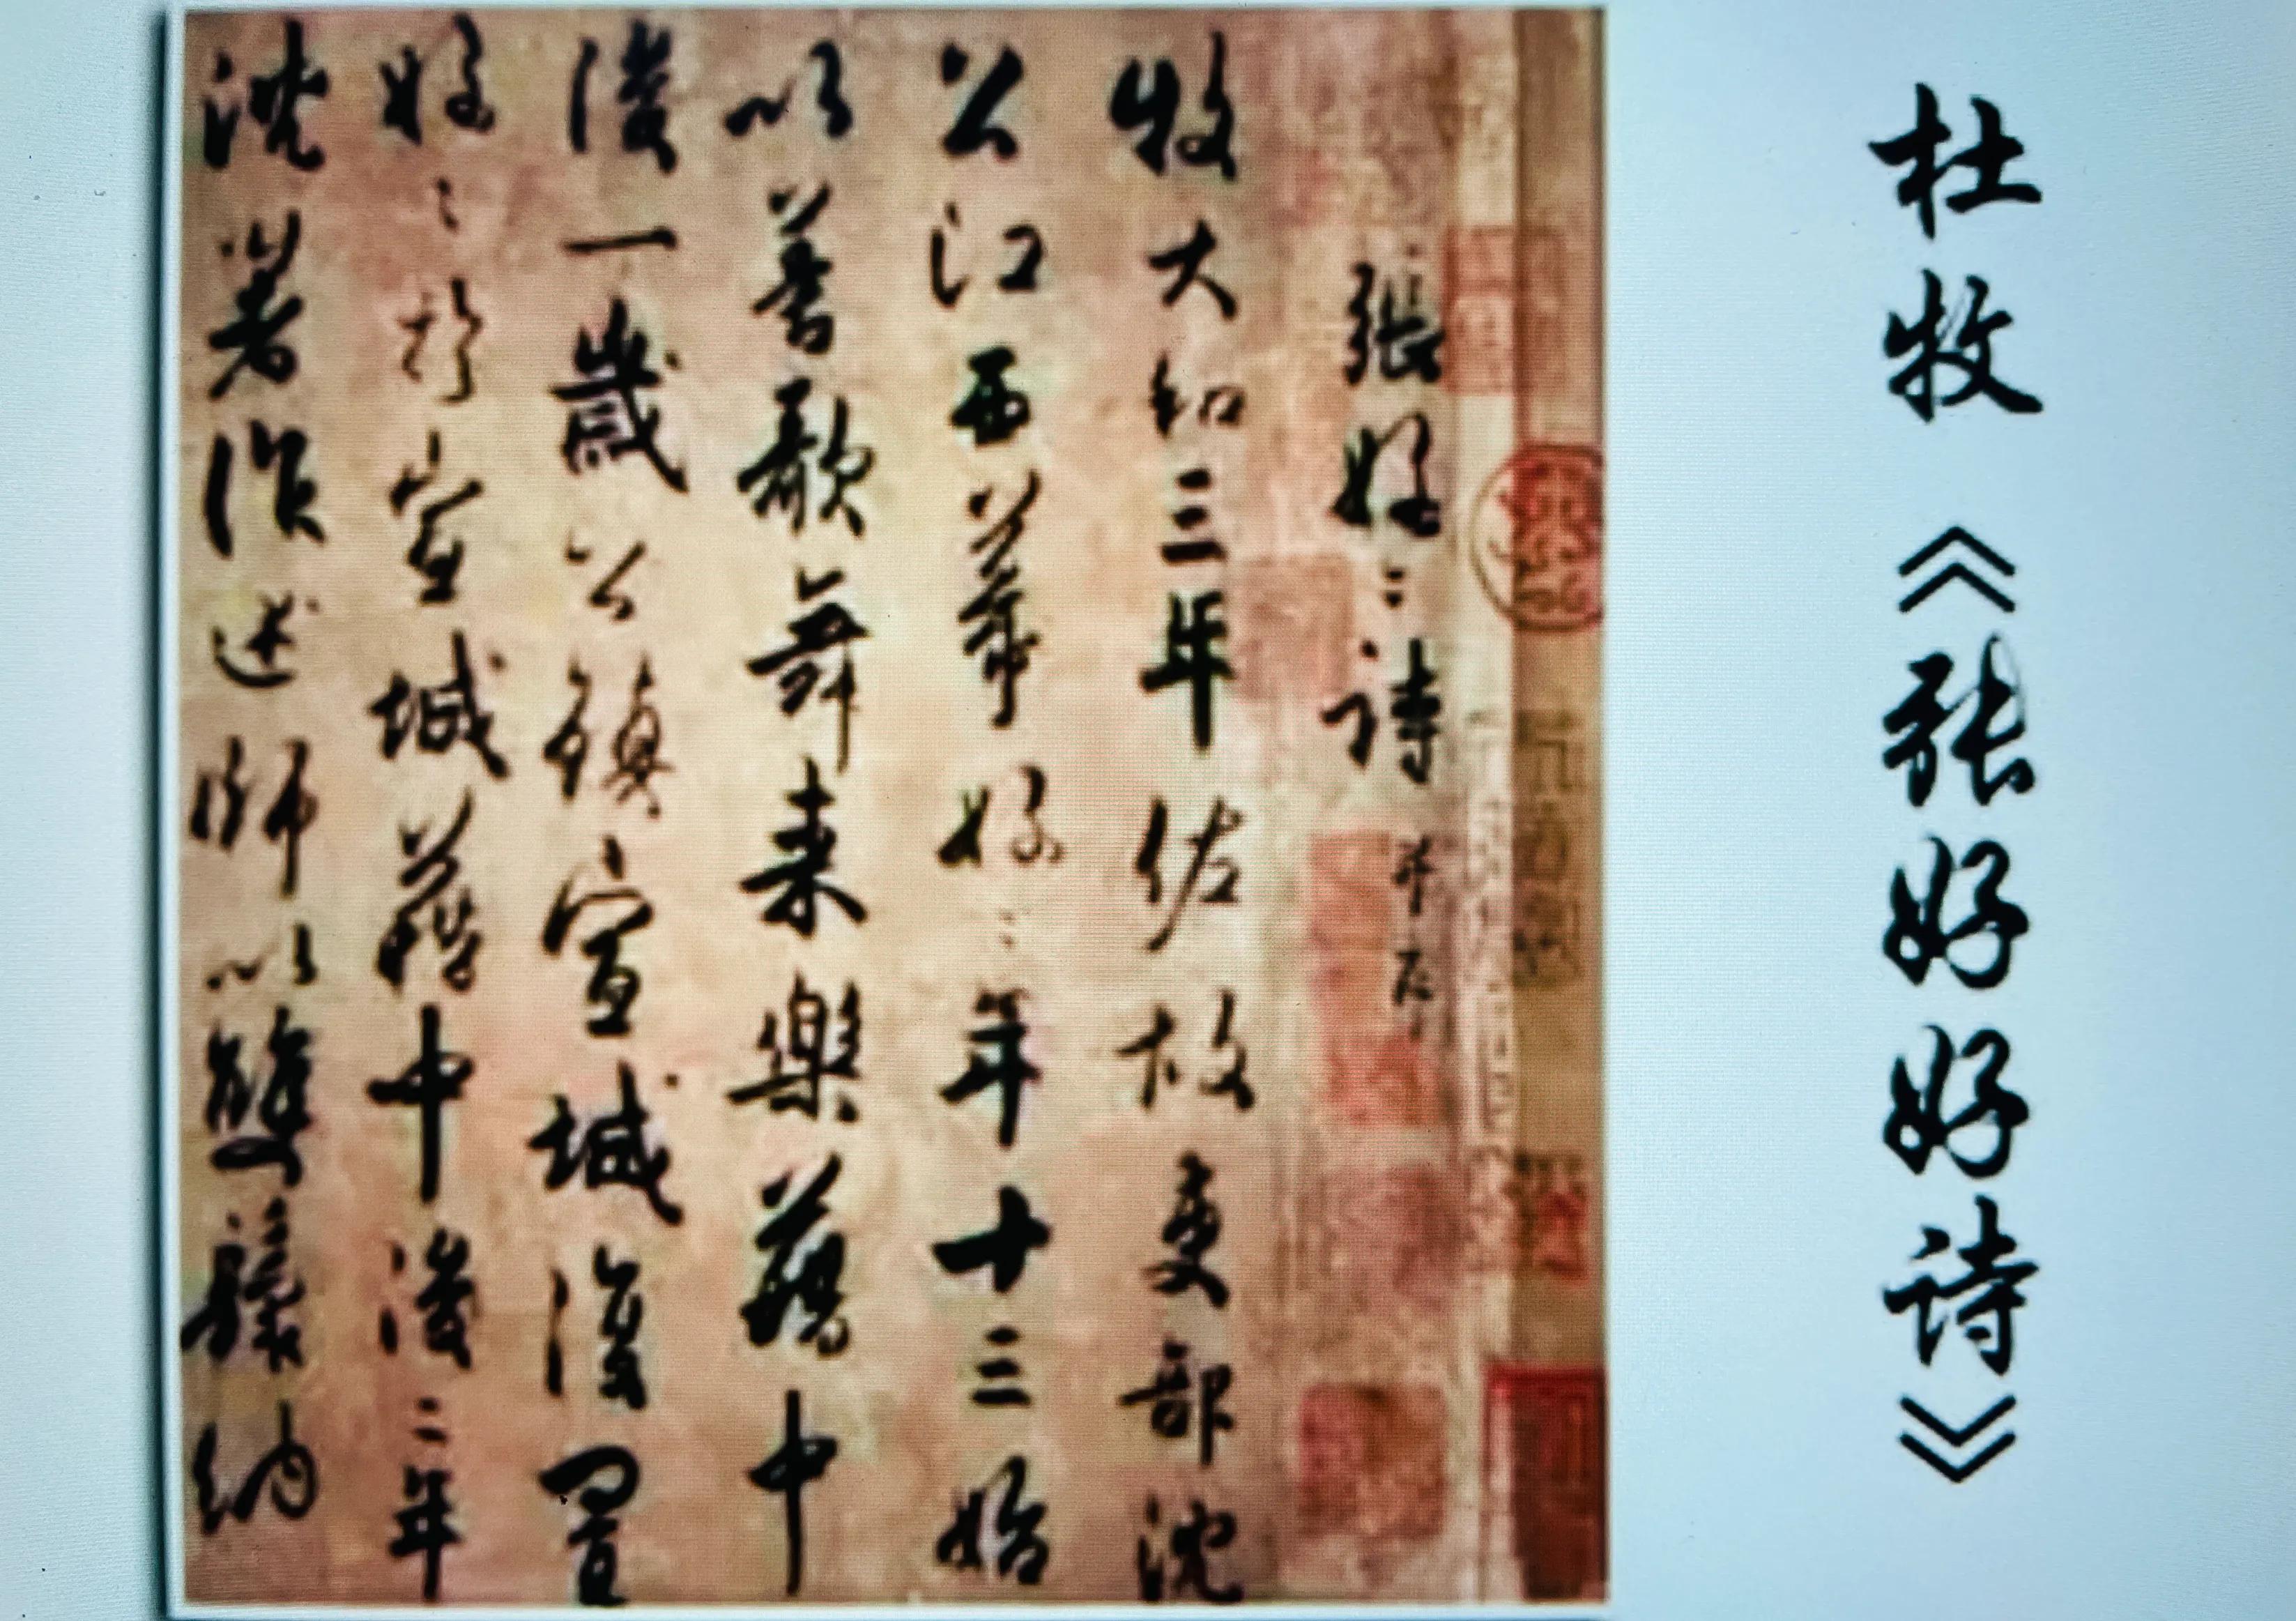 杜牧《张好好诗》
張好〻詩 并序
牧大和三年佐故吏部沈
公江西幕好〻年十三始
以善歌舞来樂籍中
後一歲公鎮宣城復置
好〻於宣城籍中後二年
沈著作述師以雙鬟納